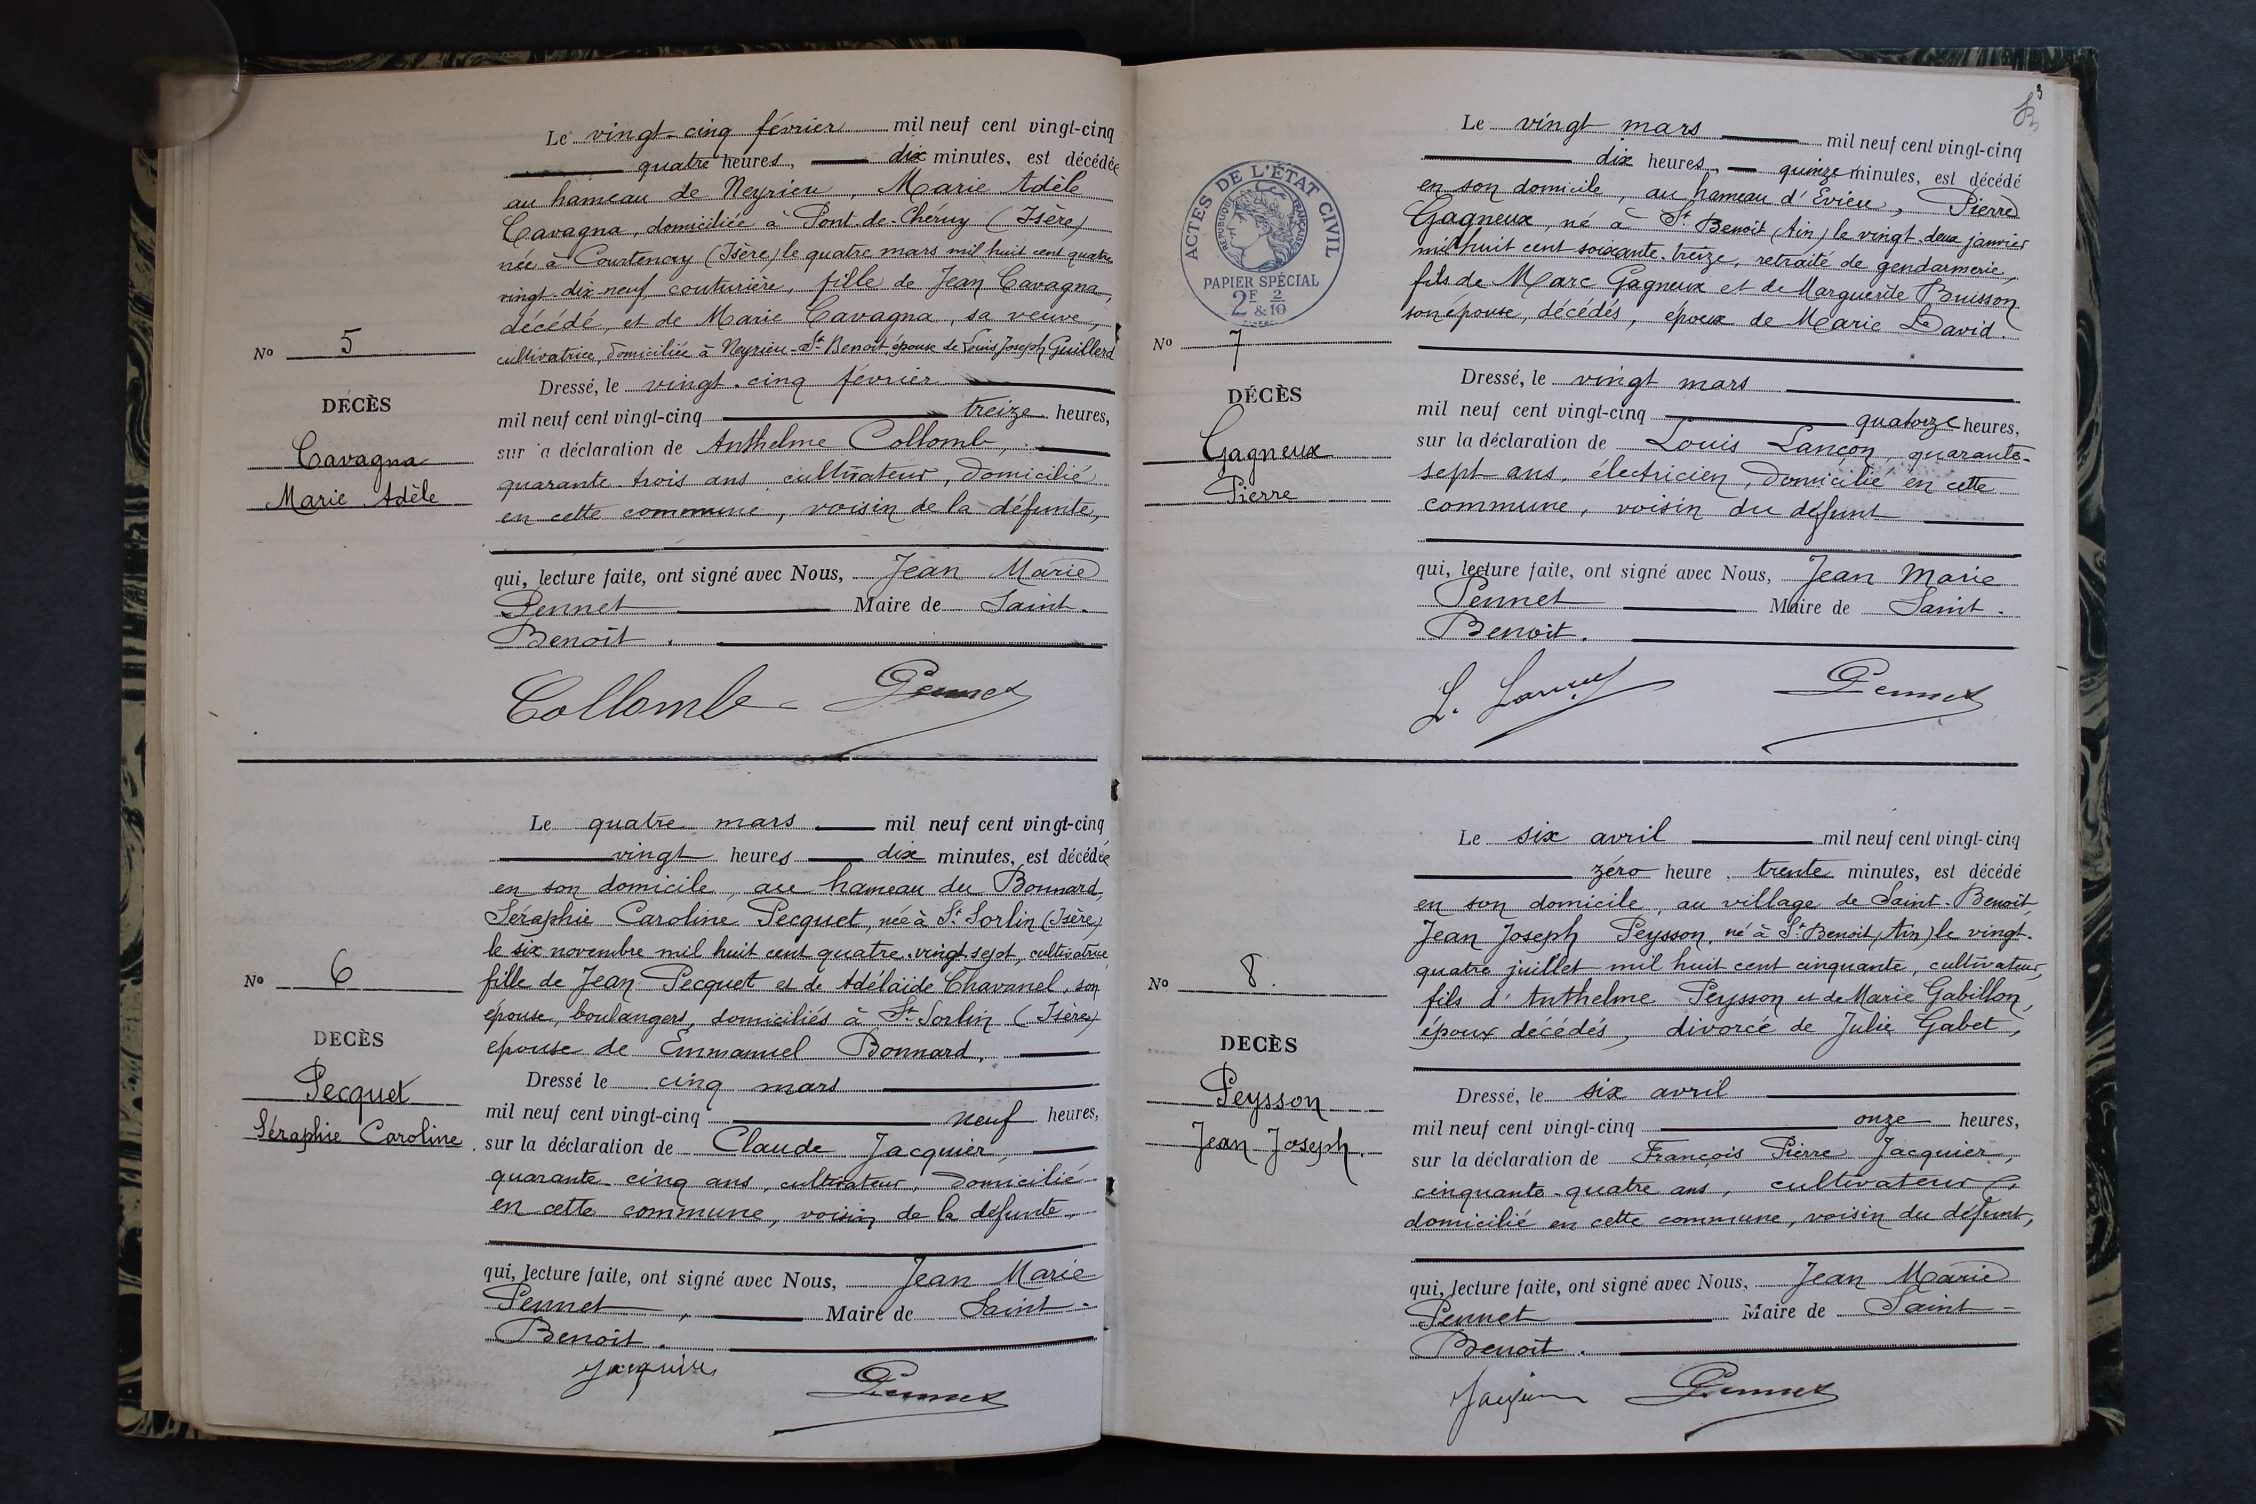 Le vingt-cinq février mil neuf cent vingt-cinq
quatre heures, dix minutes, est décédée
au hameau de Neyrieu, Marie Adèle
Cavagna, domiciliée à Pont-de-Chéruy (Isère)
née à Courtenay (Isère) le quatre mars mil huit cent quatre
vingt-dix-neuf couturière, fille de Jean Cavagna,
décédé, et de Marie Cavagna, sa veuve,
cultivatrice, domiciliée à Neyrieu-St-Benoit épouse de Louis Joseph Guillerd
No 5
DÉCÈS
Cavagna
Marie Adèle
Dressé, le vingt-cinq février
mil neuf cent vingt-cinq treize heures,
sur a déclaration de Anthelme Collomb,
quarante-trois ans cultivateur, domicilié
en cette commune, voisin de la défunte,
qui, lecture faite, ont signé avec Nous, Jean Marie
Pennet Maire de Saint-
Benoît.
Collomb Pennet
Le quatre mars mil neuf cent vingt-cinq
vingt heures dix minutes, est décédée
en son domicile, au hameau du Bonnard,
Séraphie Caroline Pecquet, née à St Sorlin (Isère)
le six novembre mil huit cent quatre-vingt-sept, cultivatrice
fille de Jean Pecquet et de Adélaïde Chavanel, son
épouse, boulangers, domiciliés à St Sorlin (Isère)
épouse de Emmanuel Bonnard,
No 6
DECÈS
Pecquet
Séraphie Caroline.
Dressé le cinq mars
mil neuf cent vingt-cinq neuf heures,
sur la déclaration de Claude Jacquier,
quarante-cinq ans, cultivateur, domicilié
en cette commune, voisin de la défunte,
qui, lecture faite, ont signé avec Nous, Jean Marie
Pennet, Maire de Saint-
Benoît.
Jacquier Pennet
3
ACTES DE L'ÉTAT CIVIL
RÉPUBLIQUE FRANÇAISE
PAPIER SPÉCIAL
2F & 2/10
Le vingt mars mil neuf cent vingt-cinq
dix heures, quinze minutes, est décédé
en son domicile, au hameau d'Evieu, Pierre
Gagneux, né à St Benoit (Ain) le vingt-deux janvier
mil huit cent soixante-treize, retraité de gendarmerie,
fils de Marc Gagneux et de Marguerite Buisson
son épouse, décédés, époux de Marie David.
No 7
DÉCÈS
Gagneux
Pierre
Dressé, le vingt mars
mil neuf cent vingt-cinq quatorze heures,
sur la déclaration de Louis Lançon, quarante-
sept ans, électricien, domicilié en cette
commune, voisin du défunt
qui, lecture faite, ont signé avec Nous, Jean Marie
Pennet Maire de Saint-
Benoit.
L. Lançon Pennet
Le six avril mil neuf cent vingt-cinq
zéro heure, trente minutes, est décédé
en son domicile, au village de Saint-Benoît,
Jean Joseph Peysson, né à St Benoit (Ain) le vingt-
quatre juillet mil huit cent cinquante, cultivateur,
fils d'Anthelme Peysson et de Marie Gabillon,
époux décédés, divorcé de Julie Gabet,
No 8.
DECÈS
Peysson
Jean Joseph.
Dressé, le six avril
mil neuf cent vingt-cinq onze heures,
sur la déclaration de François Pierre Jacquier,
cinquante-quatre ans, cultivateur,
domicilié en cette commune, voisin du défunt,
qui, lecture faite, ont signé avec Nous, Jean Marie
Pennet Maire de Saint-
Benoît.
Jacquier Pennet